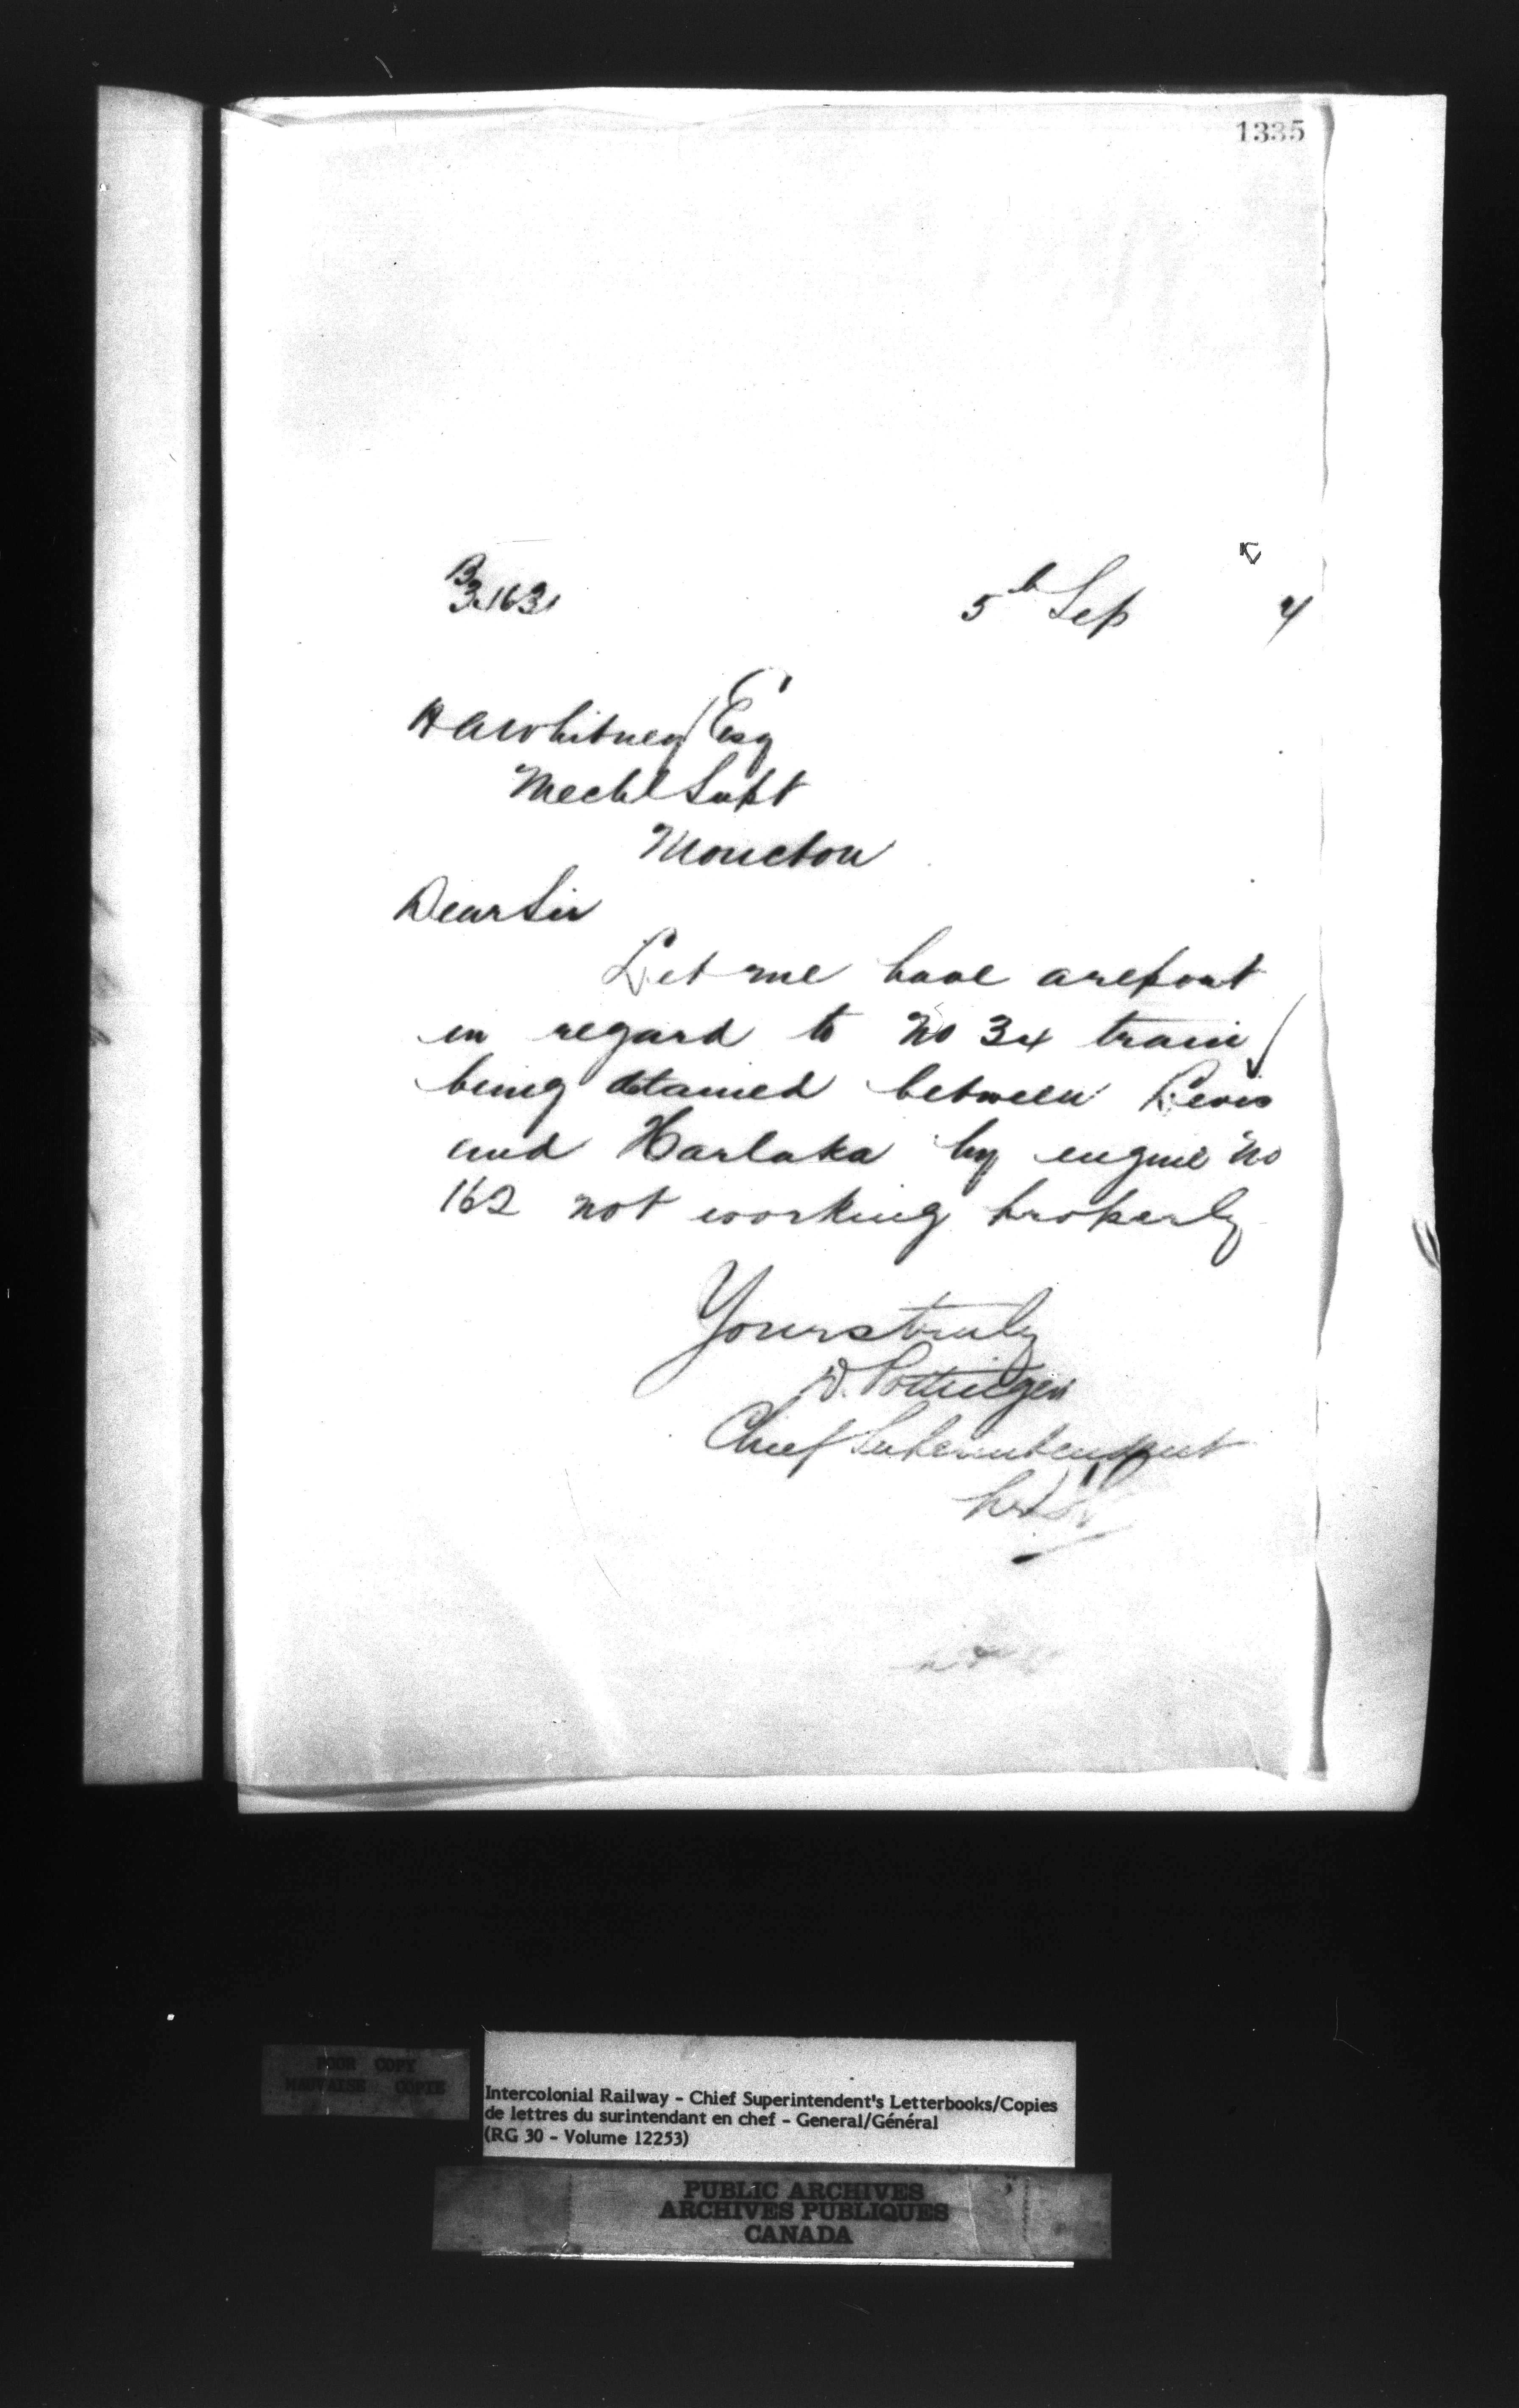 1335
B
3163
5th Sep 4
H A Whitney Esq
Mechl Supt
Moncton
Dear Sir
Let me have a report
in regard to No 34 train
being detained between Levis
and Harlaka by engine No
162 not working properly
Yours truly
D. Pottinger
Chief Superintendent
POOR COPY
MAUVAISE COPIE
Intercolonial Railway - Chief Superintendent's Letterbooks/Copies
de lettres du surintendant en chef - General/Général
(RG 30 - Volume 12253)
PUBLIC ARCHIVES
ARCHIVES PUBLIQUES
CANADA